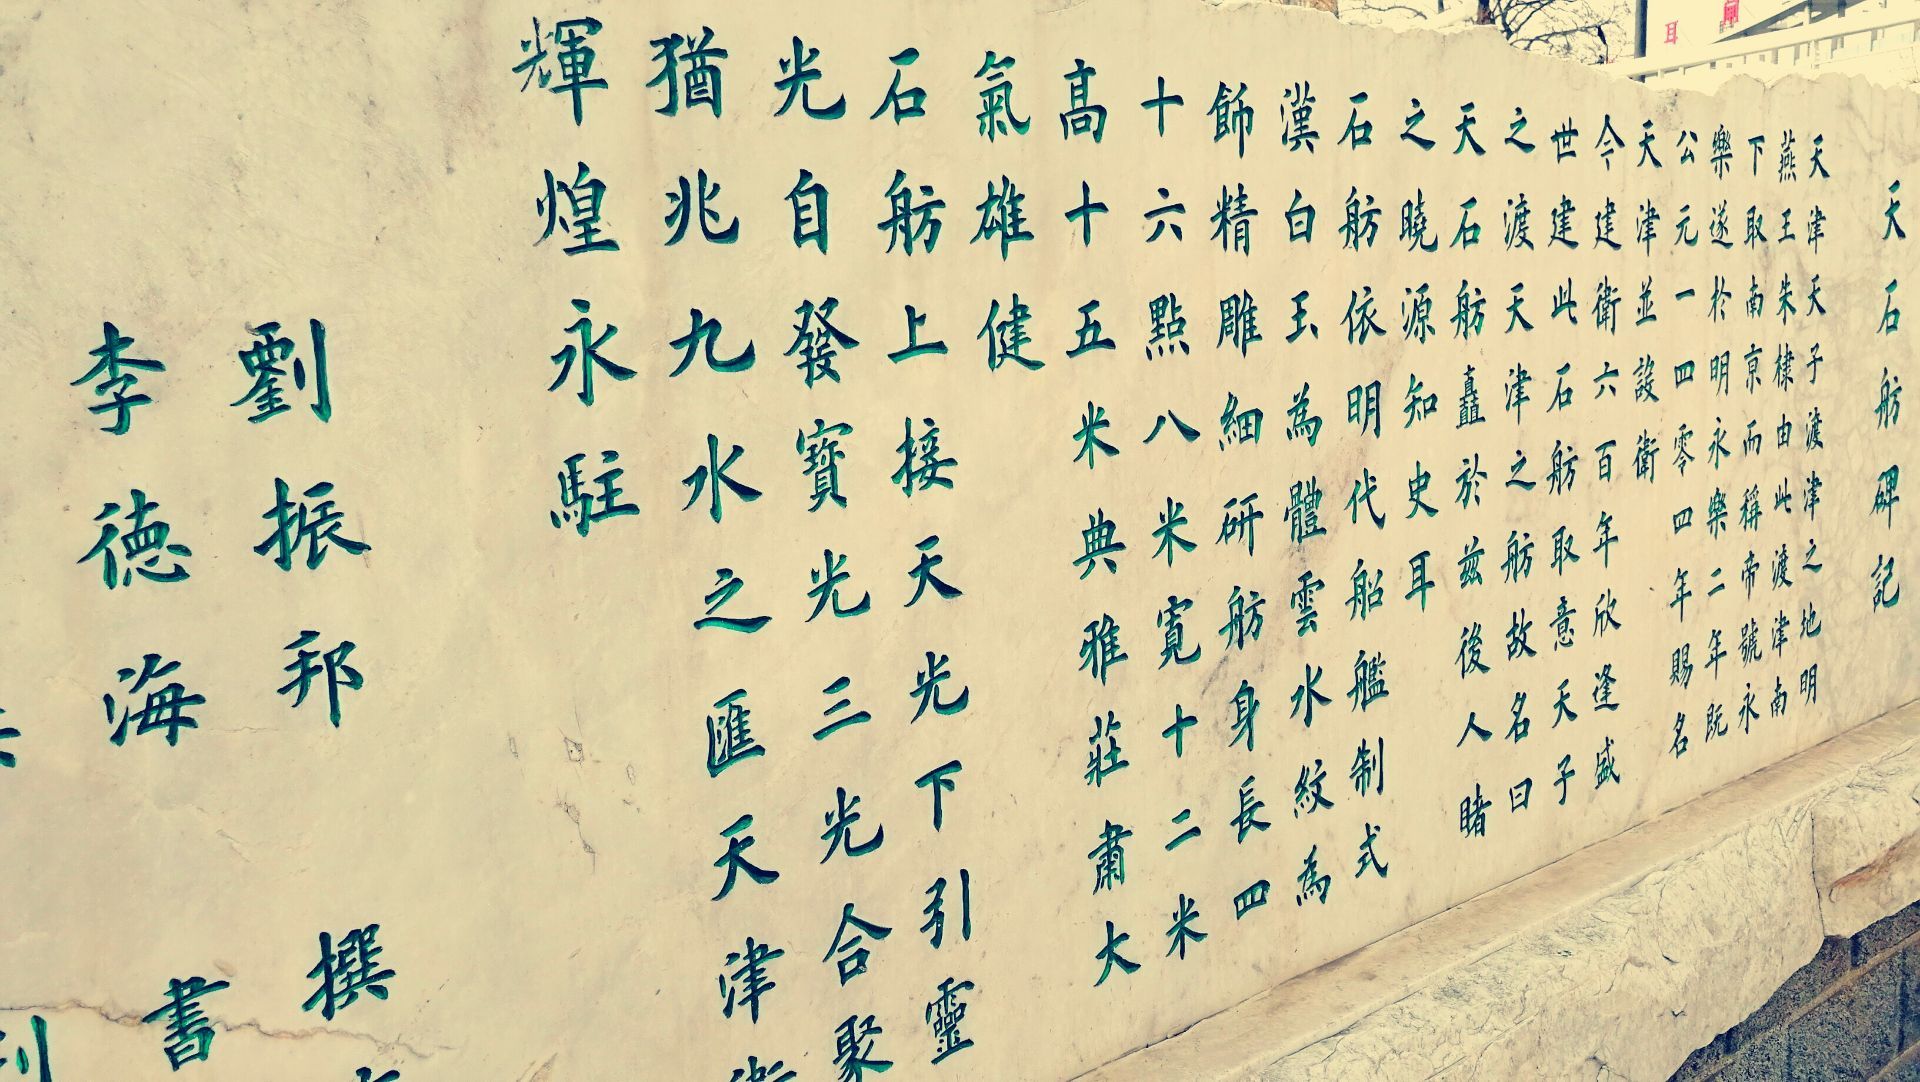 天石舫碑記
天津天子渡津之地明
燕王朱棣由此渡津南
下取南京而稱帝號永
樂遂於明永樂二年既
公元一四零四年賜名
天津並設衛
今建衛六百年欣逢盛
世建此石舫取意天子
之渡天津之舫故名曰
天石舫矗於兹後人睹
之曉源知史耳
石舫依明代船艦制式
漢白玉為體雲水紋為
飾精雕細研舫身長四
十六點八米寬十二米
高十五米典雅莊肅大
氣雄健
石舫上接天光下引靈
光自發寶光三光合聚
猶兆九水之匯天津衛
輝煌永駐
劉振邦 撰
李德海 書